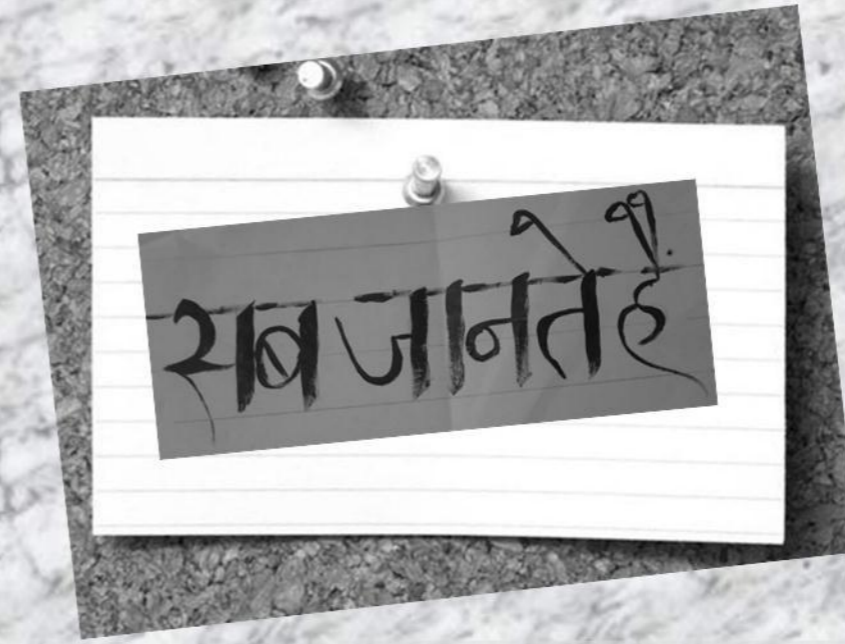 सब जानते हैं